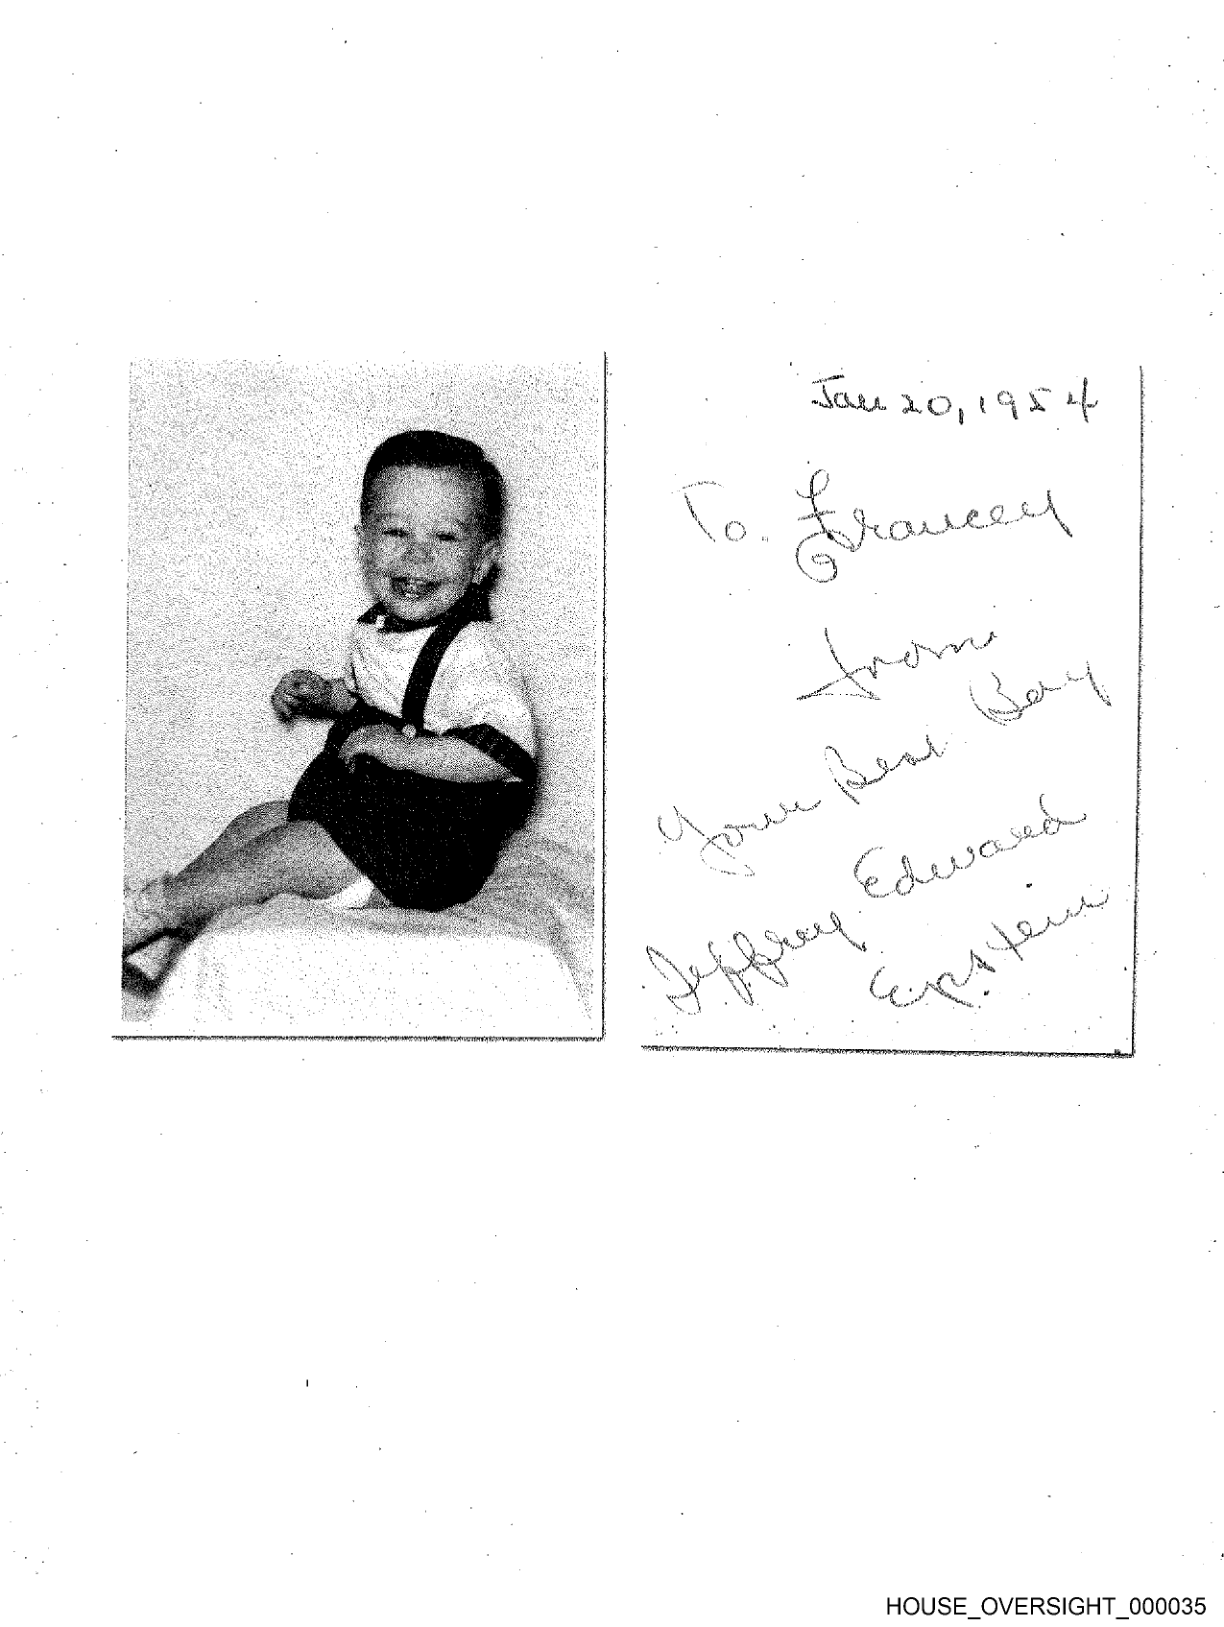 Jan 20, 1954
To. Francey
from
Your Beat Boy
Jeffrey Edward
Epstein
HOUSE_OVERSIGHT_000035